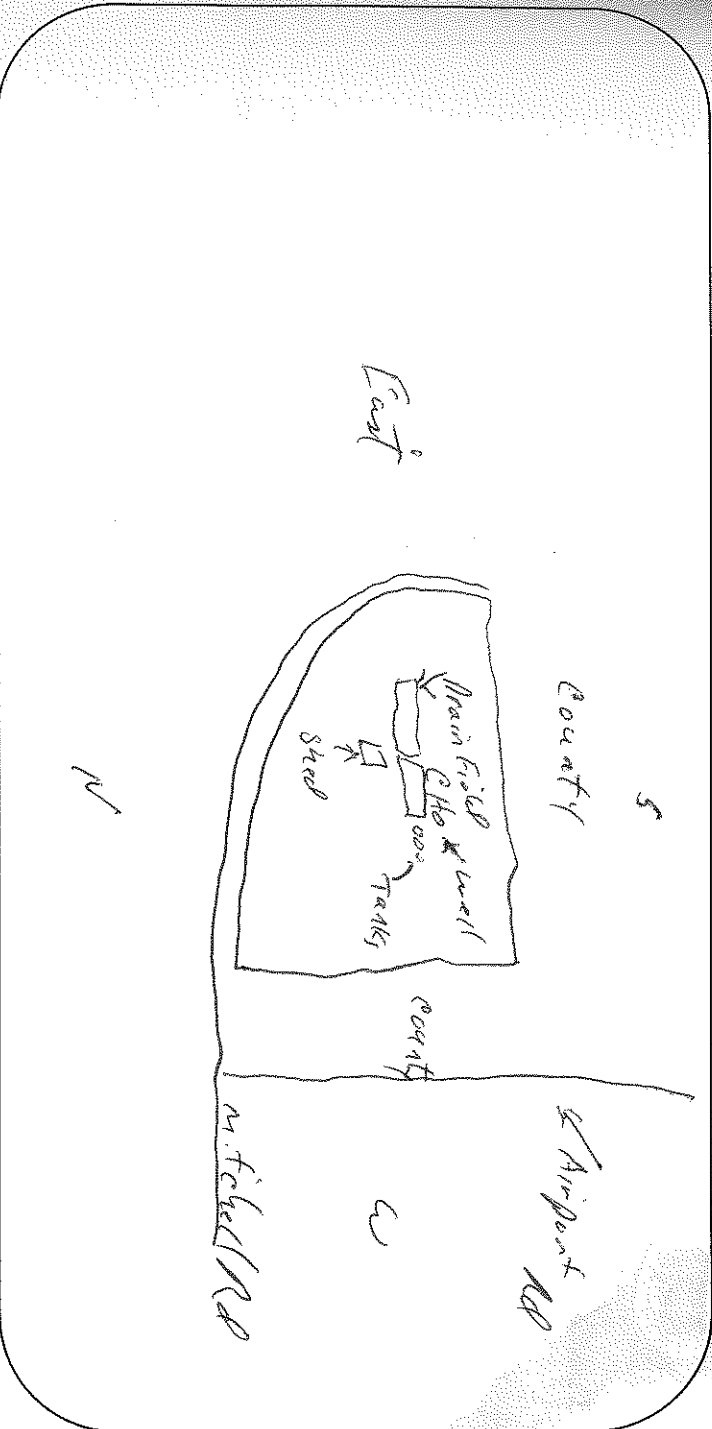 S
County
East
Drain Field
CHO x well
000
Tanks
Shed
County
Airport Rd
W
Mitchell Rd
N